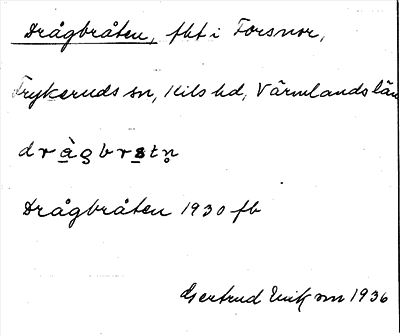 Drågbråten, fht i Forsnor,
Frykeruds sn, Kils hd, Värmlands län
dràgbrstn̥
Drågbråten 1930 fb
Gertrud 1936